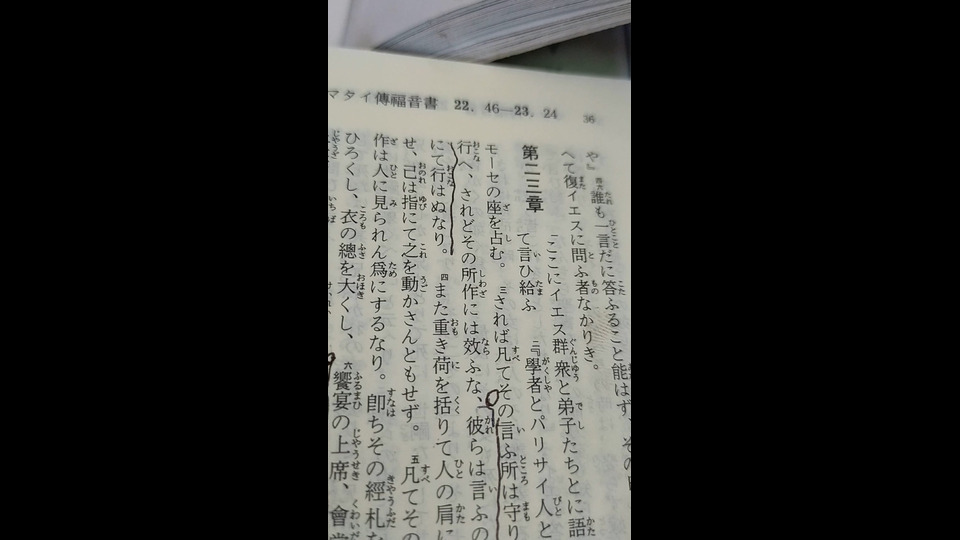 マタイ傳福音書　22. 46—23. 24　36
や』 四六 誰も一言だに答ふること能はず、その
へて復イエスに問ふ者なかりき。
第二三章　ここにイエス群衆と弟子たちとに語
て言ひ給ふ 二『學者とパリサイ人と
モーセの座を占む。 三されば凡てその言ふ所は守り
行へ、されどその所作には效ふな、彼らは言ふの
にて行はぬなり。 四また重き荷を括りて人の肩に
せ、己は指にて之を動かさんともせず。 五凡てその
作は人に見られん爲にするなり。即ちその經札を
ひろくし、衣の總を大くし、 六饗宴の上席、會堂